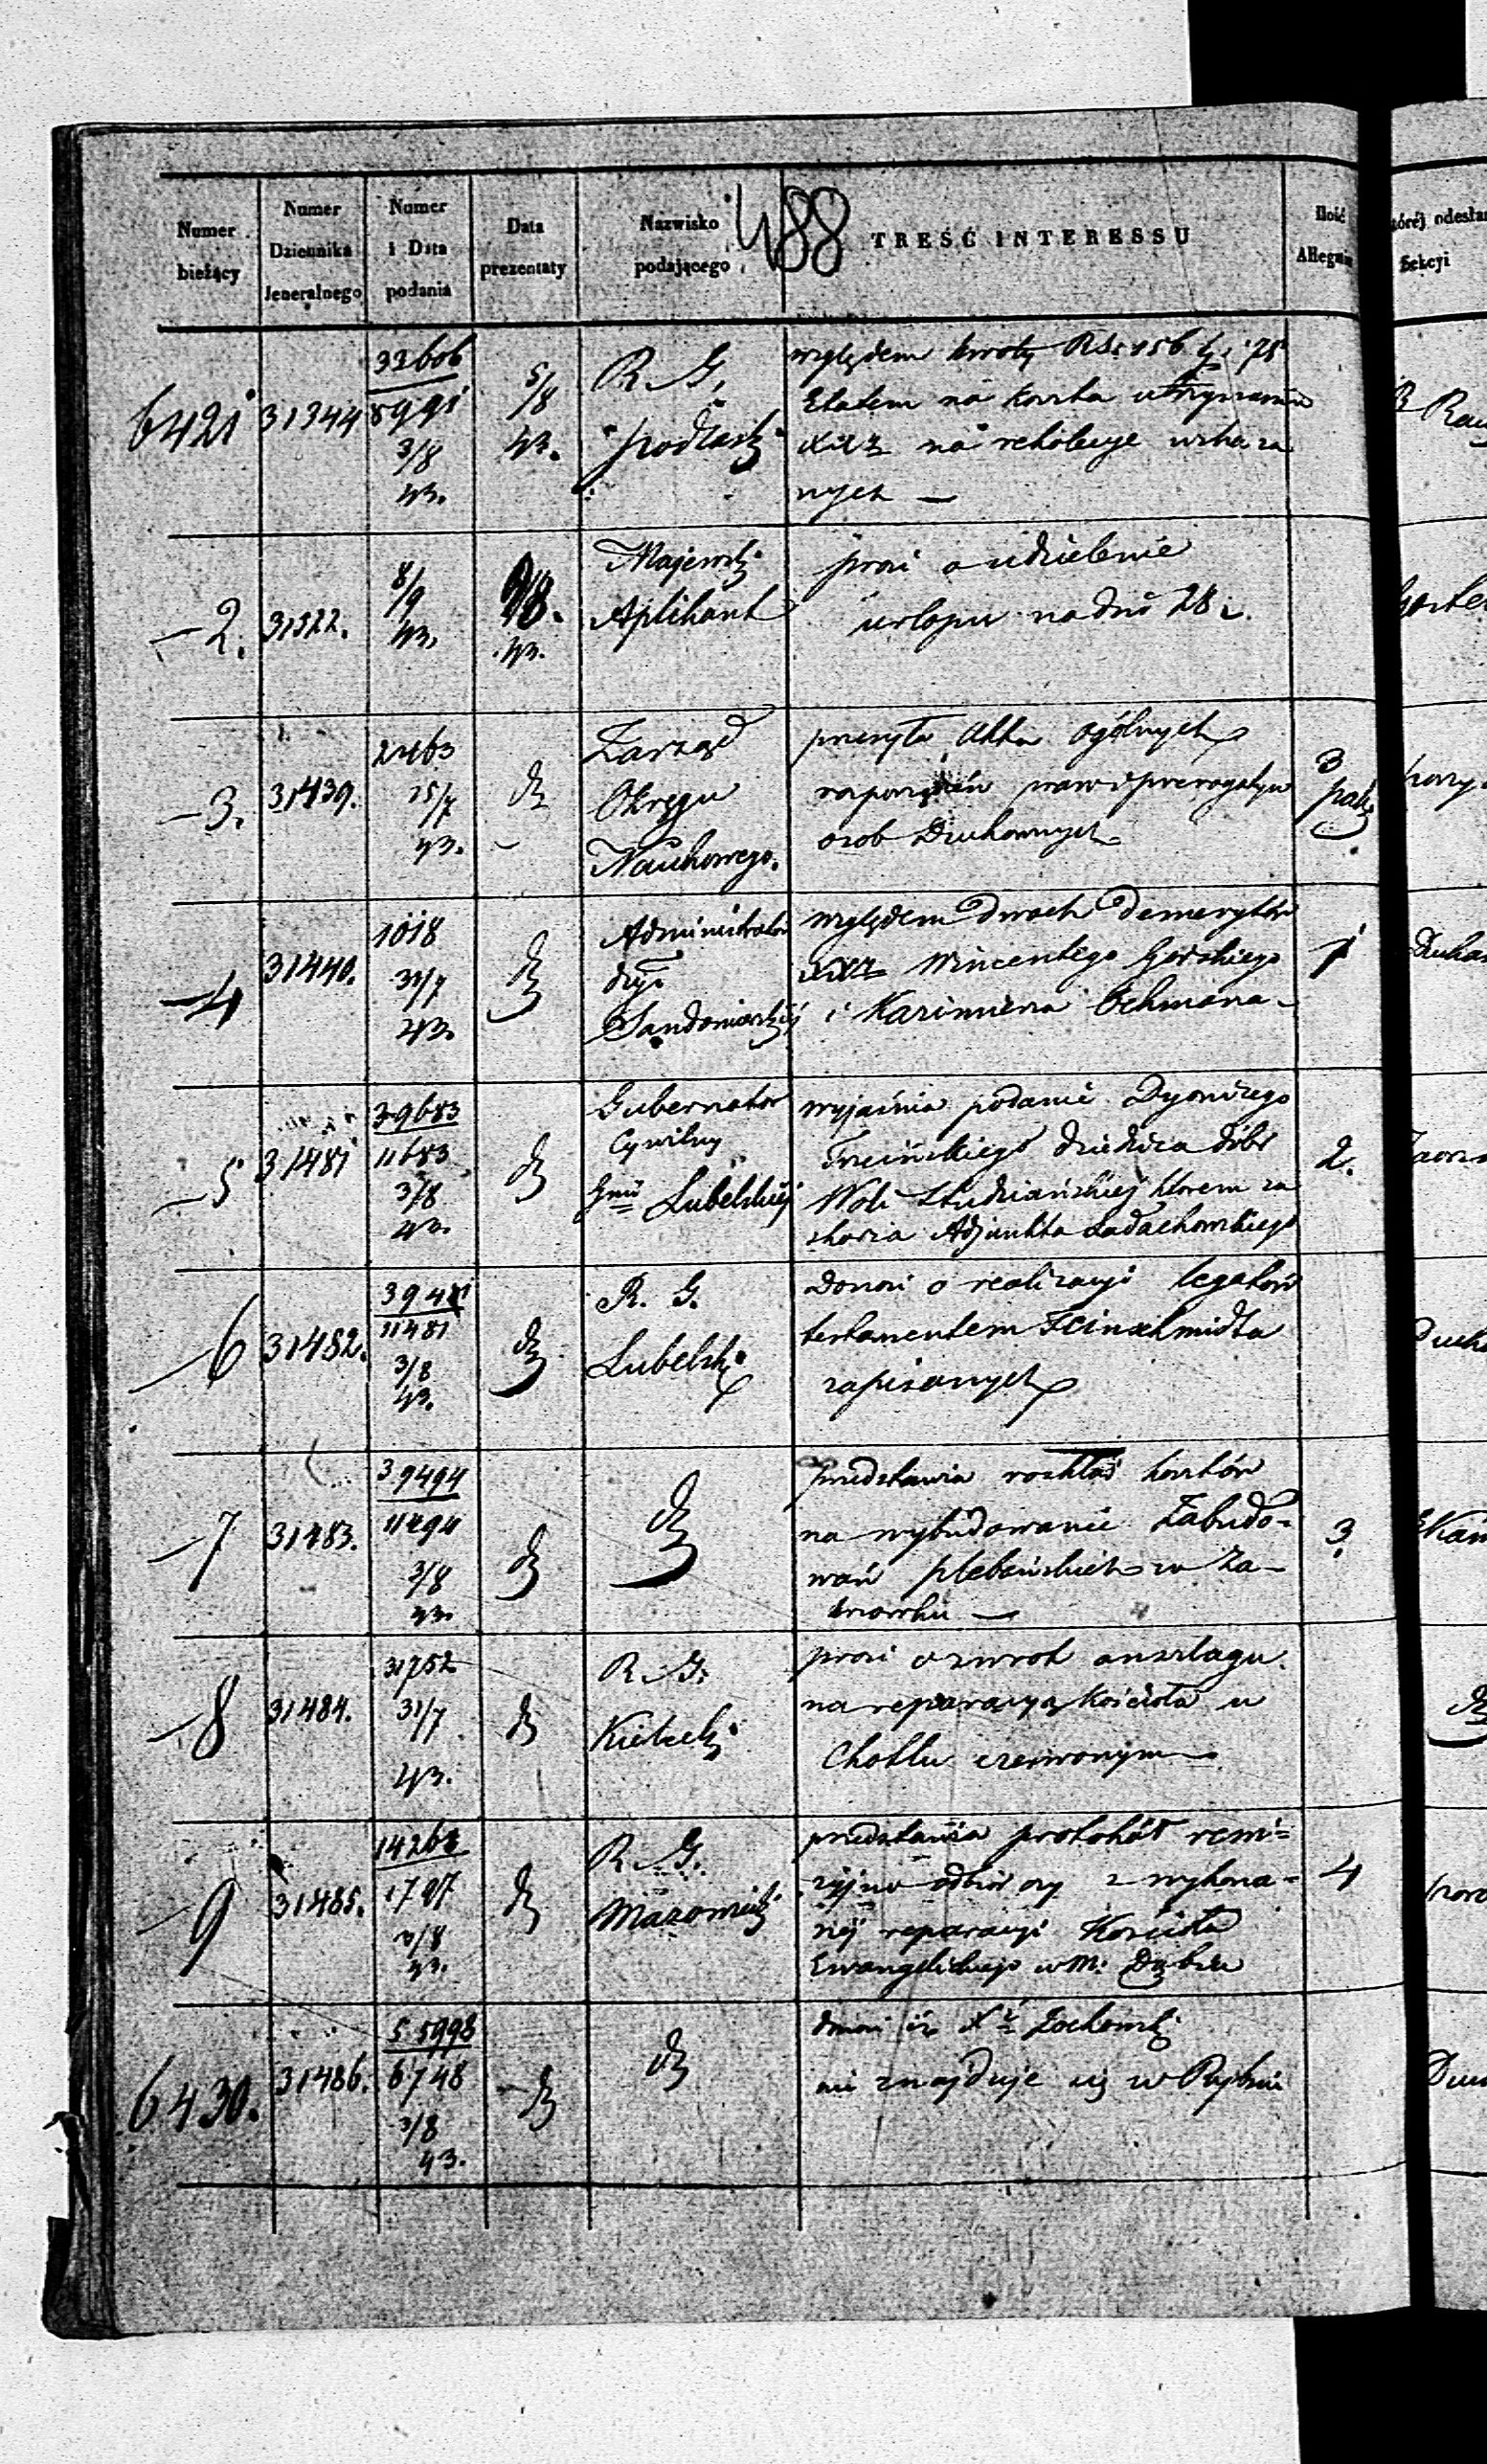 488
Numer bieżący
Numer Dziennika Jeneralnego
Numer i Data podania
Data prezentaty
Nazwisko podającego
TREŚĆ INTERESSU
Ilość
której odesła
Sekcyi
6421 31344
33606
5991
3/8
43.
5/8
43.
R. G.
Podlaski
względem kwoty RSr 156 k. 75
Etatem na koszta utrzymania
XXzy na rekolekcye wskaza
nych —
—2. 31322.
8/9
43.
9/8.
43.
Majewski
Aplikant
prosi o udzielenie
urlopu na dni 28
—3. 31439.
2463
15/7
43.
Zarząd
Okręgu
Naukowego.
przesyła Akta ogólnych
rozporządzeń praw i prerogatyw
osob Duchownych
3
—4 31440.
1018
31/7
43.
Administrator
dyi
Sandomierskiej
względem dwóch Demerytów
XXzy Wincentego Gerskiego
i Kazimierza Ochmana —
1
—5 31481
39683
11683
3/8
43.
Gubernator
Cywilny
Gnii Lubelskiej
wyjaśnia podanie Dyonizego
Trzcińskiego dziedzica dóbr
Woli Studziańskiej którem za
skarza Adjunkta Ladachowskiego
2.
—6 31482.
39481
11481
3/8
43.
R. G.
Lubelski
Donosi o realizacyi legatów
testamentem Feinschmidta
zapisanych
—7 31483.
39494
11494
3/8
43.
przedstawia rozkład kosztów
na wybudowanie Zabudo-
wań plebańskich w Za-
3.
—8 31484.
31752
31/7
43.
R. G.
Kielecki
prosi o zwrot anszlagu
na reparacyą kościoła w
Chotlu czerwonym
—9 31485.
1797
43.
R. G.
Mazowiecki
przedstawia protokół rewi-
zyjno odbiorczy z wykona-
néj reparacyi Kościoła
Ewangelickiego w M. Dąbiu
4
6430. 31486.
55998
6748
3/8
43.
donosi iż X Żochowski
nie znajduje się w